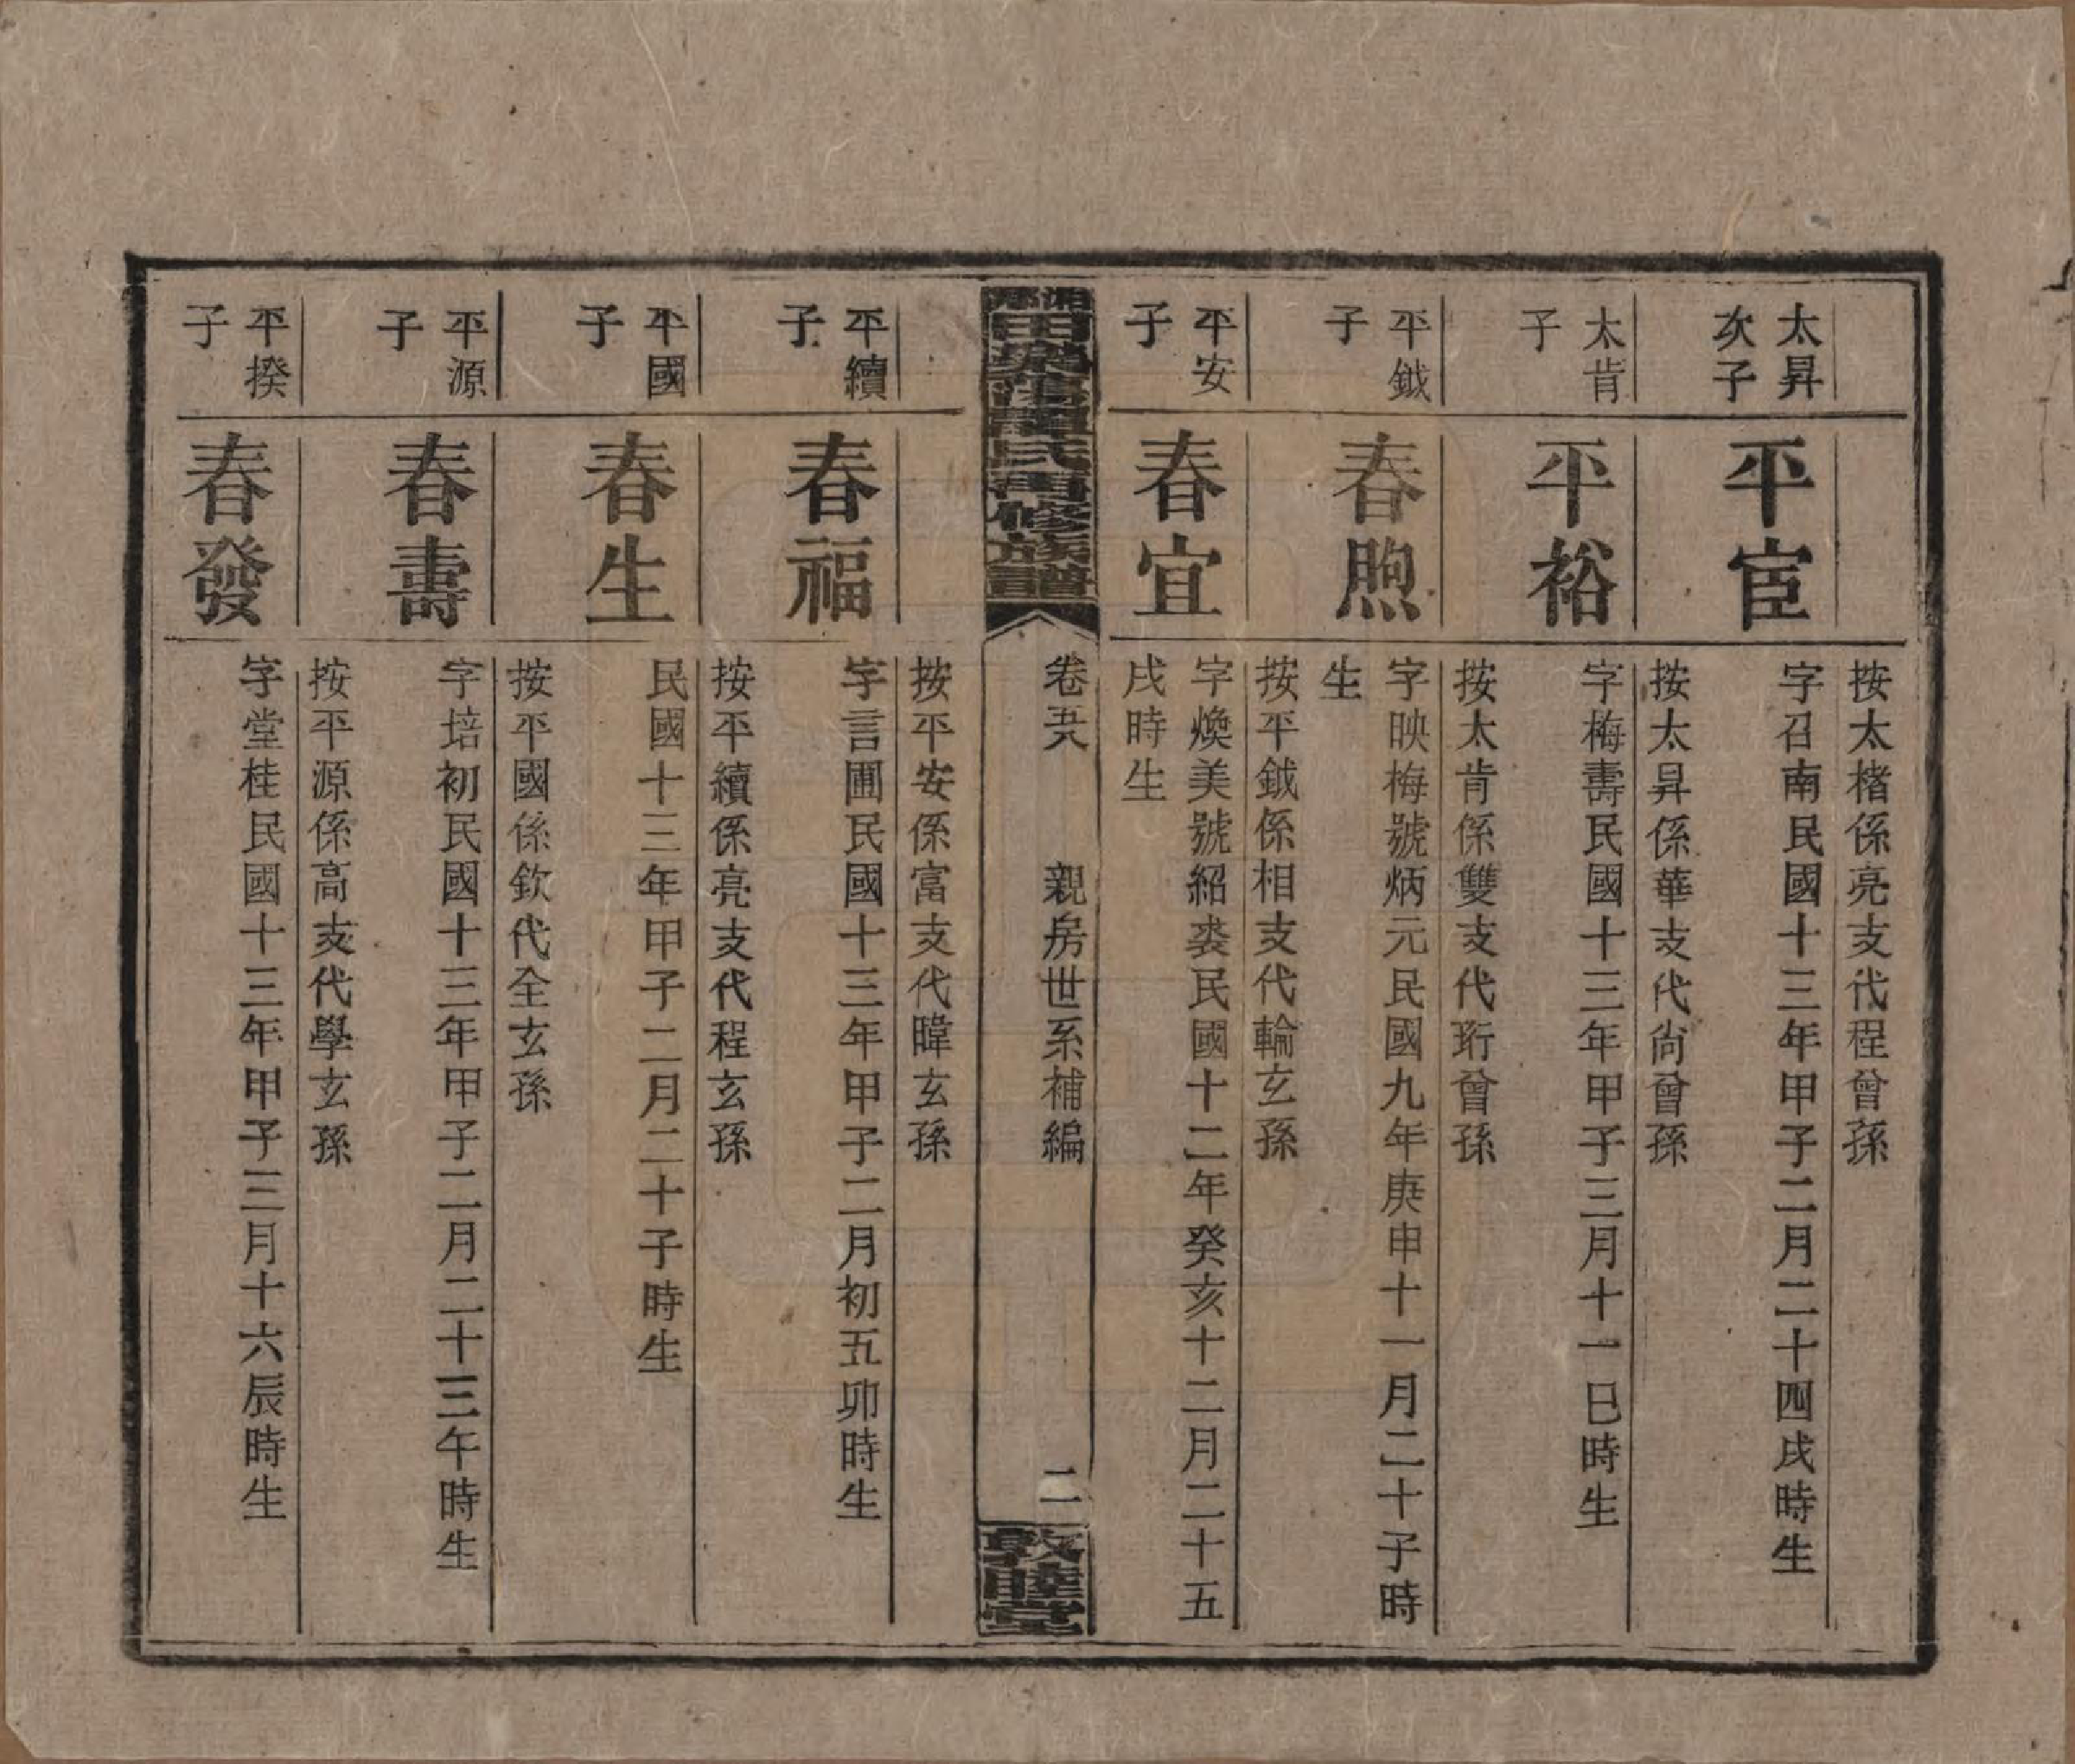 太昇次子
平宦
按太楮係亮支代程曾孫
字召南民國十三年甲子二月二十四戌時生
太肯子
平裕
按太昇係華支代尚曾孫
字梅壽民國十三年甲子三月十一巳時生
平鉞子
春煦
按太肯係雙支代珩曾孫
字映梅號炳元民國九年庚申十一月二十子時
生
平安子
春宜
按平鉞係相支代輪玄孫
字煥美號紹裘民國十二年癸亥十二月二十五
戌時生
田氏再修族譜
卷五八
親房世系補編
二
敦睦堂
平續子
春福
按平安係富支代暐玄孫
字言圃民國十三年甲子二月初五卯時生
平國子
春生
按平續係亮支代程玄孫
民國十三年甲子二月二十子時生
平源子
春壽
按平國係欽代全玄孫
字培初民國十三年甲子二月二十三午時生
平揆子
春發
按平源係高支代學玄孫
字堂桂民國十三年甲子三月十六辰時生